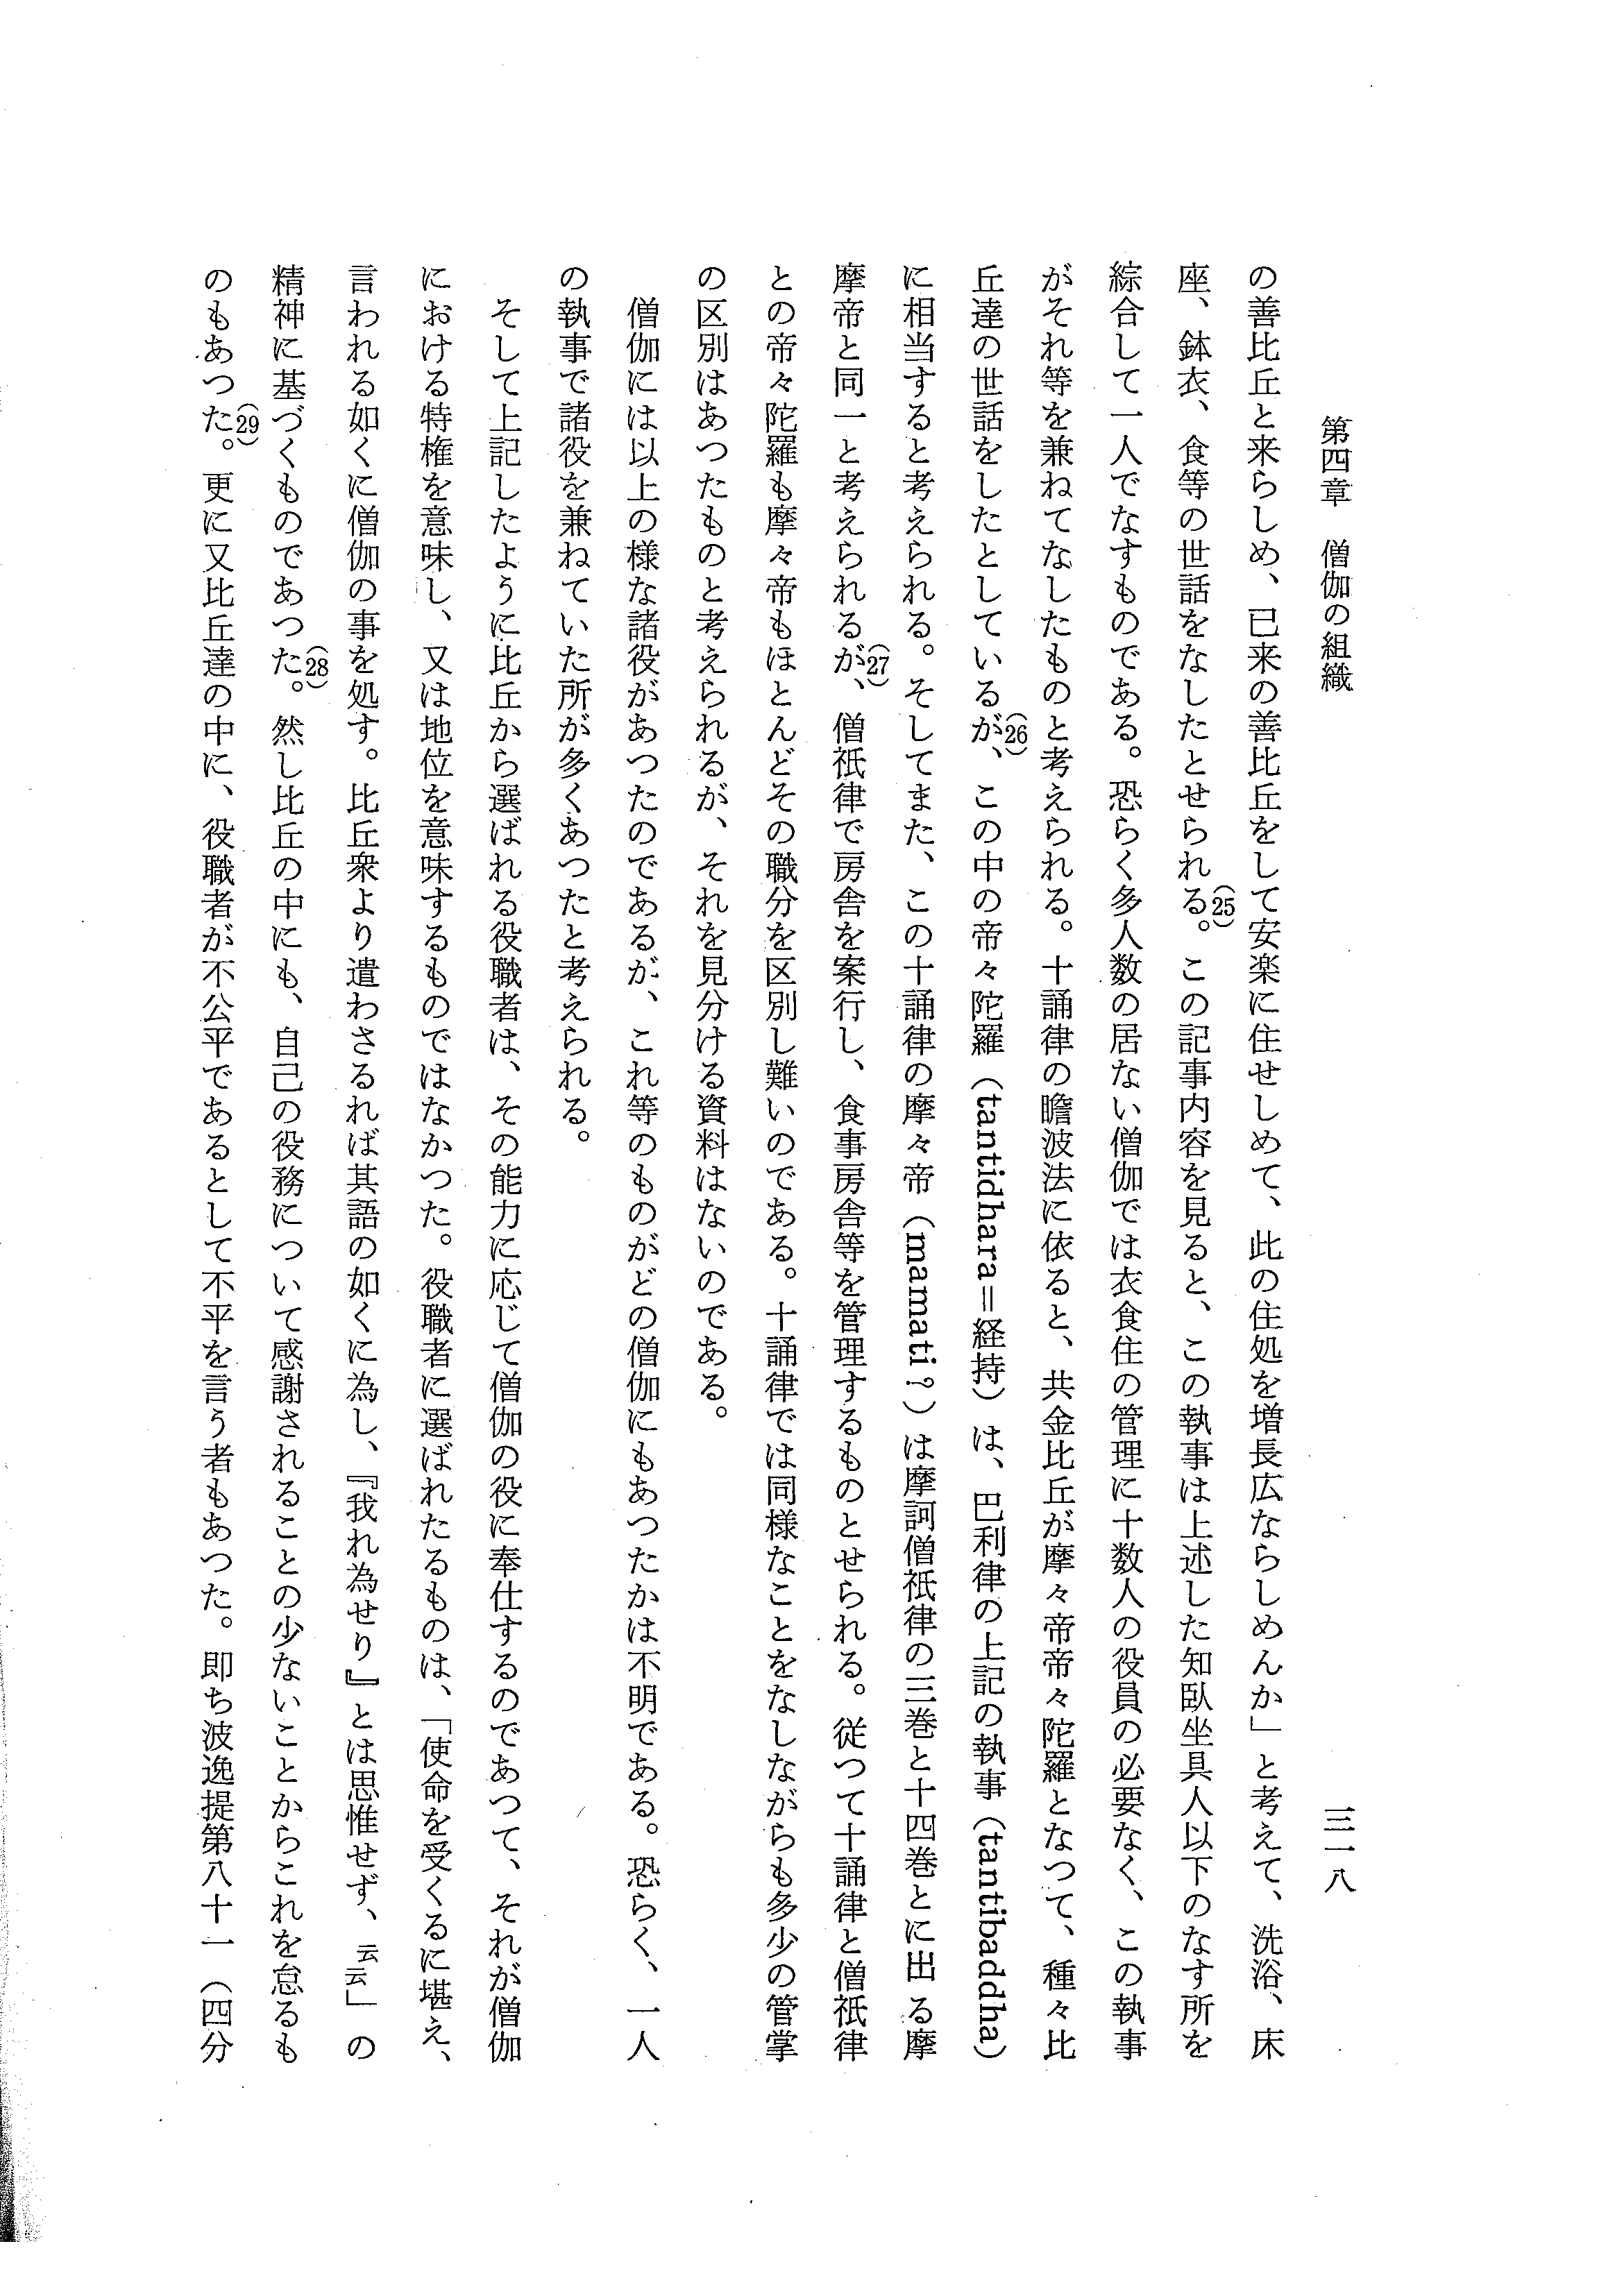 第四章　僧伽の組織
三一八
の善比丘と来らしめ、已来の善比丘をして安楽に住せしめて、此の住処を増長広ならしめんか」と考えて、洗浴、床
座、鉢衣、食等の世話をなしたとせられる。(25)この記事内容を見ると、この執事は上述した知臥坐具人以下のなす所を
綜合して一人でなすものである。恐らく多人数の居ない僧伽では衣食住の管理に十数人の役員の必要なく、この執事
がそれ等を兼ねてなしたものと考えられる。十誦律の瞻波法に依ると、共金比丘が摩々帝帝々陀羅となつて、種々比
丘達の世話をしたとしているが、(26)この中の帝々陀羅（tantidhara＝経持）は、巴利律の上記の執事（tantibaddha）
に相当すると考えられる。そしてまた、この十誦律の摩々帝（mamati?）は摩訶僧祇律の三巻と十四巻とに出る摩
摩帝と同一と考えられるが、(27)僧祇律で房舎を案行し、食事房舎等を管理するものとせられる。従つて十誦律と僧祇律
との帝々陀羅も摩々帝もほとんどその職分を区別し難いのである。十誦律では同様なことをなしながらも多少の管掌
の区別はあつたものと考えられるが、それを見分ける資料はないのである。
　僧伽には以上の様な諸役があつたのであるが、これ等のものがどの僧伽にもあつたかは不明である。恐らく、一人
の執事で諸役を兼ねていた所が多くあつたと考えられる。
　そして上記したように比丘から選ばれる役職者は、その能力に応じて僧伽の役に奉仕するのであつて、それが僧伽
における特権を意味し、又は地位を意味するものではなかつた。役職者に選ばれたるものは、「使命を受くるに堪え、
言われる如くに僧伽の事を処す。比丘衆より遣わさるれば其語の如くに為し、『我れ為せり』とは思惟せず、云云」の
精神に基づくものであつた。(28)然し比丘の中にも、自己の役務について感謝されることの少ないことからこれを怠るも
のもあつた。(29)更に又比丘達の中に、役職者が不公平であるとして不平を言う者もあつた。即ち波逸提第八十一（四分